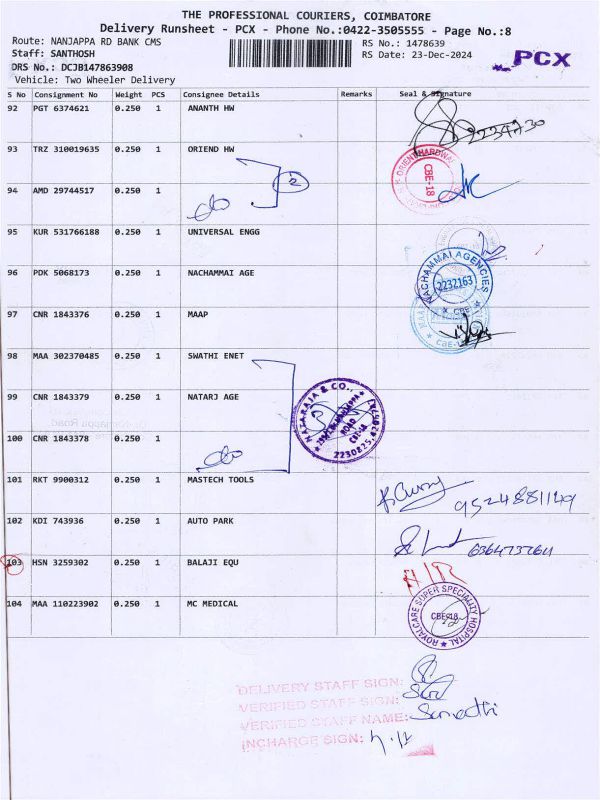 THE PROFESSIONAL COURIERS, COIMBATORE
Delivery Runsheet - PCX - Phone No.:0422-3505555 - Page No.:8
Route: NANJAPPA RD BANK CMS
RS No.: 1478639
Staff: SANTHOSH
RS Date: 23-Dec-2024
PCX
DRS No.: DCJB147863908
Vehicle: Two Wheeler Delivery
S No Consignment No Weight PCS Consignee Details Remarks Seal & Signature
92 PGT 6374621 0.250 1 ANANTH HW
2234230
93 TRZ 310019635 0.250 1 ORIEND HW
CBE-18
2
94 AMD 29744517 0.250 1
do
95 KUR 531766188 0.250 1 UNIVERSAL ENGG
96 PDK 5068173 0.250 1 NACHAMMAI AGE
NACHAMMAI AGENCIES
2232163
CBE
97 CNR 1843376 0.250 1 MAAP
98 MAA 302370485 0.250 1 SWATHI ENET
99 CNR 1843379 0.250 1 NATARJ AGE
NATARAJA & CO.,
ROAD
CBE-18
2230825,
100 CNR 1843378 0.250 1
do
101 RKT 9900312 0.250 1 MASTECH TOOLS
9524881149
102 KDI 743936 0.250 1 AUTO PARK
6364737264
103 HSN 3259302 0.250 1 BALAJI EQU
104 MAA 110223902 0.250 1 MC MEDICAL
ROYALCARE SUPER SPECIALITY HOSPITAL
CBE-18
DELIVERY STAFF SIGN:
VERIFIED STAFF SIGN:
VERIFIED STAFF NAME:
INCHARGE SIGN: